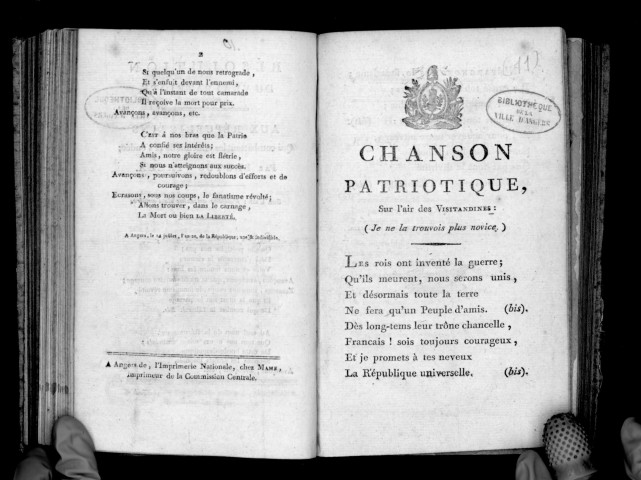 2
Si quelqu'un de nous retrograde,
Et s'enfuit devant l'ennemi,
Qu'à l'instant de tout camarade
Il reçoive la mort pour prix.
Avançons, avançons, etc.
C'est à nos bras que la Patrie
A confié ses intérêts;
Amis, notre gloire est flétrie,
Si nous n'atteignons aux succès.
Avançons, poursuivons, redoublons d'efforts et de
courage;
Ecrasons, sous nos coups, le fanatisme révolté;
Allons trouver, dans le carnage,
La Mort ou bien LA LIBERTÉ.
A Angers, le 14 juillet, l'an 2e. de la République, une & indivisible.
A Angers de, l'Imprimerie Nationale, chez MAME,
imprimeur de la Commission Centrale.
BIBLIOTHÈQUE
DE LA
VILLE D'ANGERS
CHANSON
PATRIOTIQUE,
Sur l'air des VISITANDINES:
(Je ne la trouvois plus novice,)
LES rois ont inventé la guerre;
Qu'ils meurent, nous serons unis,
Et désormais toute la terre
Ne fera qu'un Peuple d'amis. (bis).
Dès long-tems leur trône chancelle,
Francais! sois toujours courageux,
Et je promets à tes neveux
La République universelle. (bis).